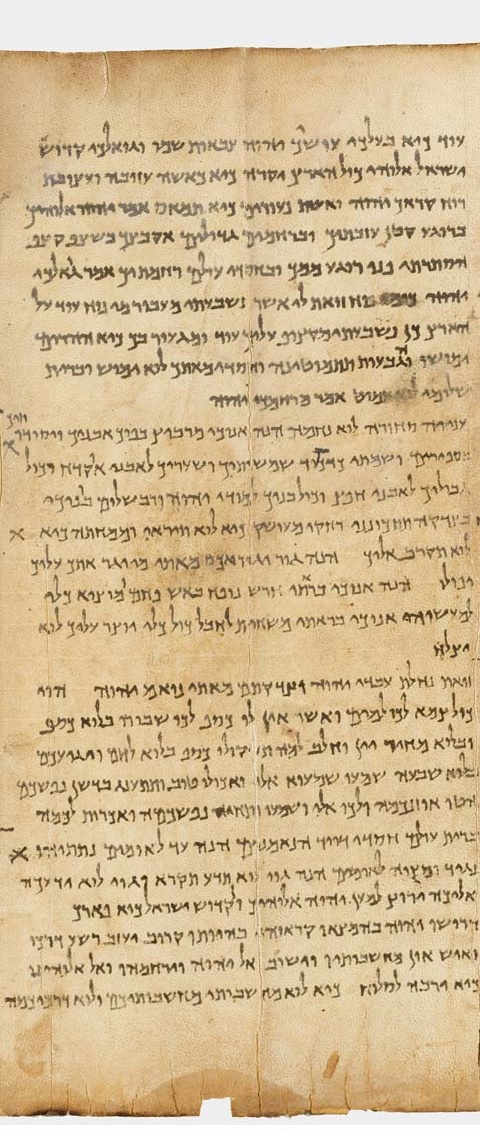 עוד כיא בעלכי עושכי יהוה צבאות שמו וגואלכי קדוש
ישראל אלוהי כול הארץ יקרה כיא כאשה עזובה ועצובת
רוח קראך יהוה ואשת נעורים כיא תמאס אמר יהוה אלוהיך
ברוגע קטן עזבתיך וברחמים גדולים אקבצך בשצף קצף
הסתרתי פני רוגע ממך ובחסדי עולם רחמתיך אמר גואלכי
יהוה כימי נוח זואת לי אשר נשבעתי מעבור מי נוח עוד על
הארץ כן נשבעתי מקצוף עליך עוד ומגעור בך כיא ההרים
ימושו והגבעות תתמוטינה וחסדי מאתך לוא ימוש וברית
שלומי לוא תמוט אמר מרחמכי יהוה
עניה סחורה לוא נחמה הנה אנוכי מרביץ בפוך אבניך ויסודותיך
בספירים ושמתי כדכוד שמשותיך ושעריך לאבני אקדח וכול
גבוליך לאבני חפץ וכול בניך למודי יהוה ורב שלום בניכי
בצדקה תתכונני רחקי מעושק כיא לוא תיראי וממחתה כיא
לוא תקרב אליך הנה גור יגר מאתי מי יגר אתך עליך
יפולו הנה אנוכי בראתי חרש נופח באש פחם ומוציא כלי
למעשיהו אנוכי בראתי משחית לחבל כול כלי יוצר עליך לוא
יצלח
זואת נחלת עבדי יהוה וצדקתם מאתי נואם יהוה הוי
כול צמא לכו למים ואשר אין לו כסף לכו שבורו בלוא כסף
ובלוא מחיר יין וחלב למה תשקולו כסף בלוא לחם ויגיעכם
בלוא שבעה שמעו שמוע אלי ואכולו טוב ותתענג בדשן נפשכם
הטו אוזנכמה ולכו אלי ושמעו ותחיה נפשכמה ואכרות לכמה
ברית עולם חסדי דויד הנאמנים הנה עד לאומים נתתיהו
נגיד ומצוה לאומים הנה גוי לוא תדע תקרא וגוי לוא ידעכה
אליכה ירוץ למען יהוה אלוהיך וקדוש ישראל כיא פארך
דרושו יהוה בהמצאו קראוהו בהיותו קרוב יעזוב רשע דרכו
ואיש און מחשבותיו וישוב אל יהוה וירחמהו ואל אלוהינו
כיא ירבה לסלוח כיא לוא מחשבותי מחשבותיכם ולוא דרכיכמה